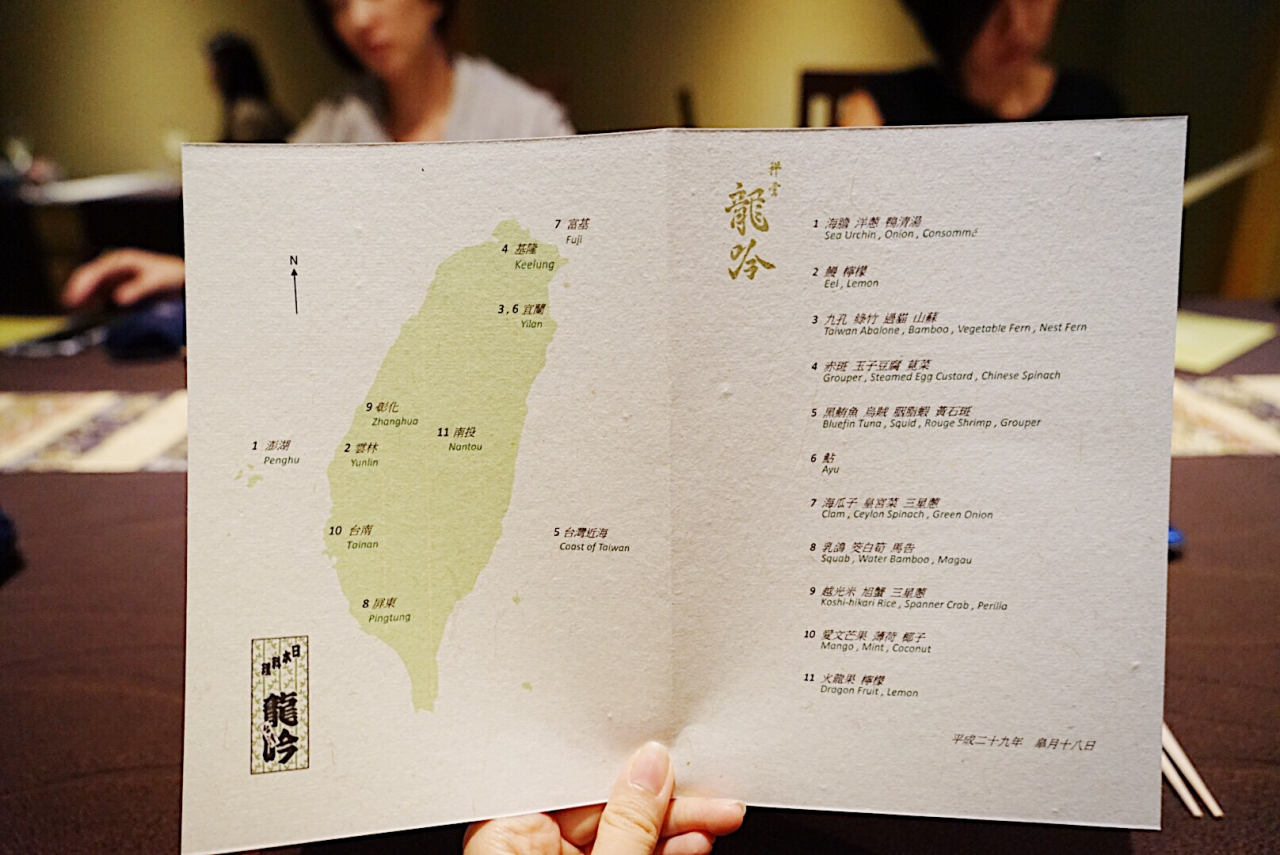 N
7 富基
Fuji
4 基隆
Keelung
3 , 6 宜蘭
Yilan
9 彰化
Zhanghua
11 南投
Nantou
1 澎湖
Penghu
2 雲林
Yunlin
10 台南
Tainan
5 台灣近海
Coast of Taiwan
8 屏東
Pingtung
日本料理
龍吟
祥雲
龍吟
1 海膽 洋蔥 鴨清湯
Sea Urchin , Onion , Consommé
2 鰻 檸檬
Eel , Lemon
3 九孔 綠竹 過貓 山蘇
Taiwan Abalone , Bamboo , Vegetable Fern , Nest Fern
4 赤斑 玉子豆腐 莧菜
Grouper , Steamed Egg Custard , Chinese Spinach
5 黑鮪魚 烏賊 胭脂蝦 黃石斑
Bluefin Tuna , Squid , Rouge Shrimp , Grouper
6 鮎
Ayu
7 海瓜子 皇宮菜 三星蔥
Clam , Ceylon Spinach , Green Onion
8 乳鴿 茭白筍 馬告
Squab , Water Bamboo , Magau
9 越光米 旭蟹 三星蔥
Koshi-hikari Rice , Spanner Crab , Perilla
10 愛文芒果 薄荷 椰子
Mango , Mint , Coconut
11 火龍果 檸檬
Dragon Fruit , Lemon
平成二十九年 皐月十八日